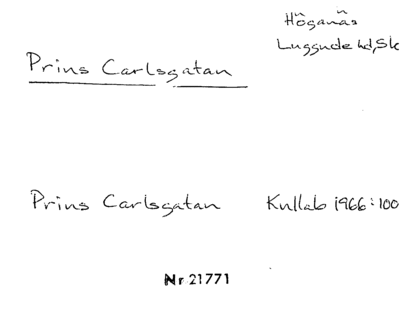 Höganäs
Luggude hd, Sk
Prins Carlsgatan
Prins Carlsgatan Kullab 1966:100
Nr 21771